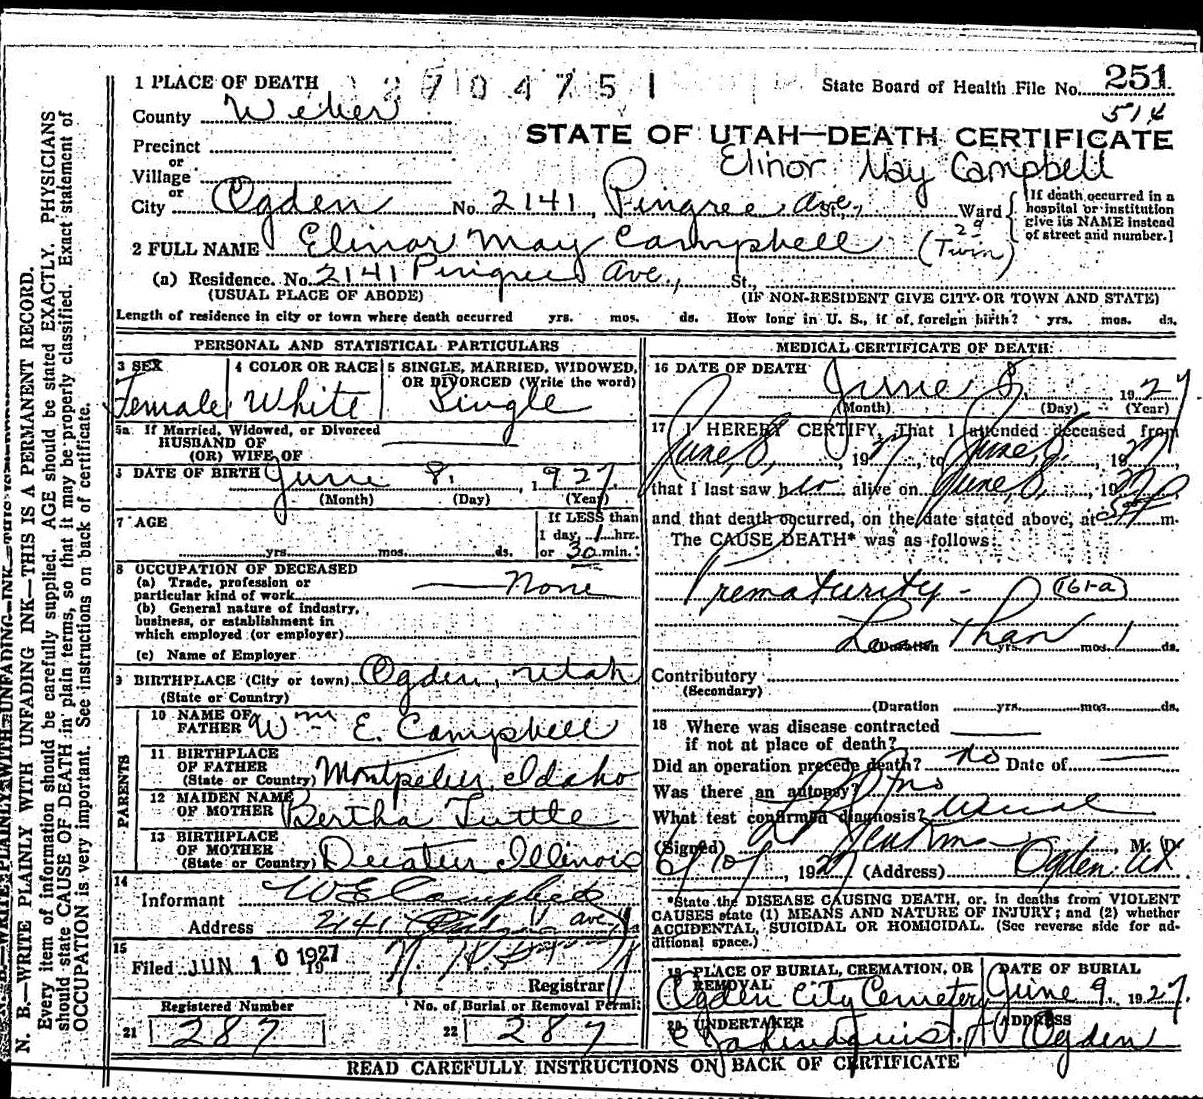 1 PLACE OF DEATH 2704751 State Board of Health File No. 251
514
County Weber
STATE OF UTAH—DEATH CERTIFICATE
Precinct
or
Village
or
Elinor May Campbell
City Ogden No. 2141, Pingree Ave. St., Ward
29
[If death occurred in a
hospital or institution
give its NAME instead
of street and number.]
2 FULL NAME Elinor May Campbell (Twin)
(a) Residence. No. 2141 Pingree Ave., St.,
(USUAL PLACE OF ABODE) (IF NON-RESIDENT GIVE CITY OR TOWN AND STATE)
Length of residence in city or town where death occurred yrs. mos. ds. How long in U. S., if of foreign birth? yrs. mos. ds.
PERSONAL AND STATISTICAL PARTICULARS
3 SEX
Female
4 COLOR OR RACE
White
5 SINGLE, MARRIED, WIDOWED,
OR DIVORCED (Write the word)
Single
5a If Married, Widowed, or Divorced
HUSBAND OF
(OR) WIFE OF
6 DATE OF BIRTH June 8, 1927
(Month) (Day) (Year)
7 AGE
yrs. mos. ds.
If LESS than
1 day, 1 hrs.
or 30 min.
8 OCCUPATION OF DECEASED
(a) Trade, profession or
particular kind of work None
(b) General nature of industry,
business, or establishment in
which employed (or employer)
(c) Name of Employer
9 BIRTHPLACE (City or town) Ogden, Utah
(State or Country)
PARENTS
10 NAME OF
FATHER Wm E. Campbell
11 BIRTHPLACE
OF FATHER
(State or Country) Montpelier, Idaho
12 MAIDEN NAME
OF MOTHER Bertha Tuttle
13 BIRTHPLACE
OF MOTHER
(State or Country) Decatur Illinois
14
Informant W E Campbell
Address 2141 ave
15
Filed JUN 10 1927
19
Registrar
Registered Number
21 287
No. of Burial or Removal Permit
22 287
MEDICAL CERTIFICATE OF DEATH
16 DATE OF DEATH June 8, 1927
(Month) (Day) (Year)
17 I HEREBY CERTIFY, That I attended deceased from
June 8, 1927, to June 8, 1927
that I last saw h alive on June 8, 1927
and that death occurred, on the date stated above, at m.
The CAUSE DEATH* was as follows:
Prematurity - (161-a)
Less Than 1
(Duration yrs. mos. ds.
Contributory
(Secondary)
(Duration yrs. mos. ds.
18 Where was disease contracted
if not at place of death?
Did an operation precede death? no Date of
Was there an autopsy? no
What test confirmed diagnosis? usual
(Signed) M. D.
6/10/, 1927 (Address) Ogden Ut
*State the DISEASE CAUSING DEATH, or, in deaths from VIOLENT
CAUSES state (1) MEANS AND NATURE OF INJURY; and (2) whether
ACCIDENTAL, SUICIDAL OR HOMICIDAL. (See reverse side for ad-
ditional space.)
19 PLACE OF BURIAL, CREMATION, OR
REMOVAL
Ogden City Cemetery
DATE OF BURIAL
June 9, 1927
20 UNDERTAKER
Lindquist
ADDRESS
Ogden
READ CAREFULLY INSTRUCTIONS ON BACK OF CERTIFICATE
N. B.—WRITE PLAINLY WITH UNFADING INK—THIS IS A PERMANENT RECORD.
Every item of information should be carefully supplied. AGE should be stated EXACTLY. PHYSICIANS
should state CAUSE OF DEATH in plain terms, so that it may be properly classified. Exact statement of
OCCUPATION is very important. See instructions on back of certificate.